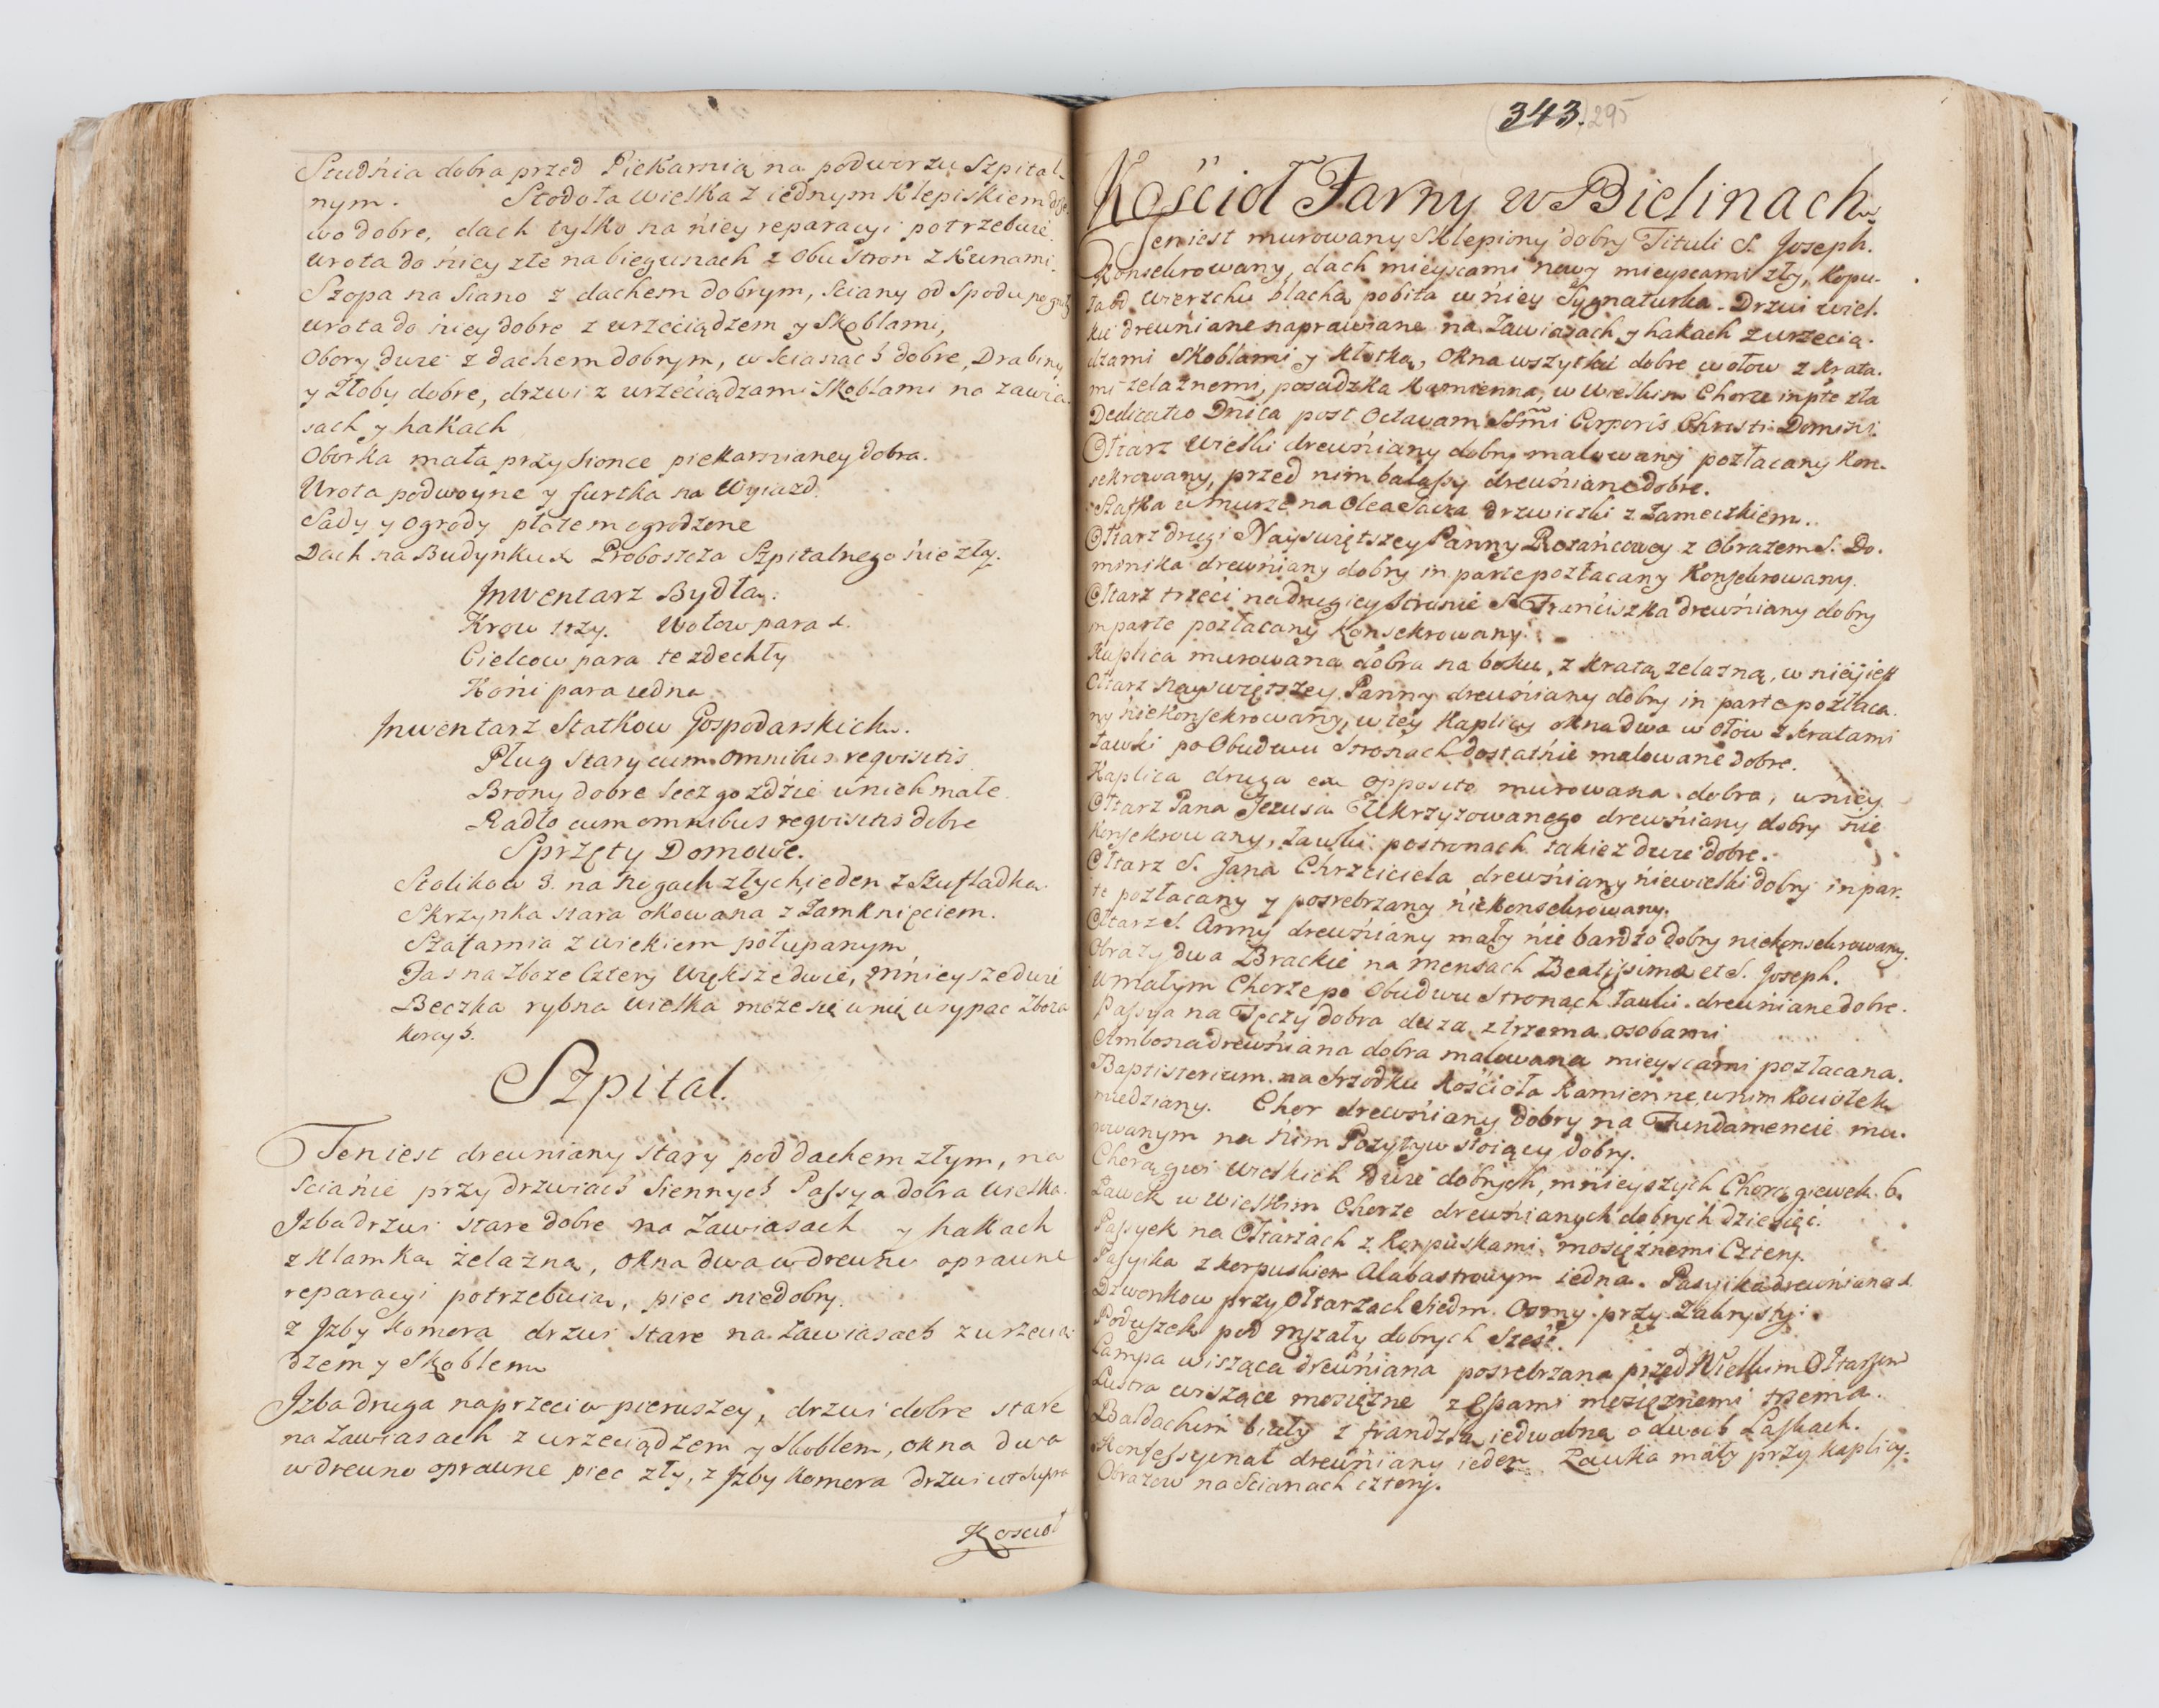 Studnia dobra przed Piekarnią na podworzu Szpital-
nym. Stodoła wielka z iednym klepiskiem
wo dobre, dach tylko na niey reparacyi potrzebuie.
wrota do niey złe na biegunach z obu stron z kunami.
Szopa na siano z dachem dobrym, sciany od spodu
wrota do niey dobre z wrzeciądzem y skoblami,
Obory dwie z dachem dobrym, w scianach dobre, Drabiny
y żłoby dobre, drzwi z wrzeciądzami skoblami na zawia-
sach y hakach
Oborka mała przy sionce piekarnianey dobra.
Wrota podwoyne y furtka na Wyiazd.
Sady y ogrody płotem ogrodzone
Dach na Budynku X Proboszcza Szpitalnego nie zły.
Inwentarz Bydła.
Krow trzy. Wołow para 1.
Cielcow para te zdechły
Koni para iedna
Inwentarz Statkow Gospodarskich.
Pług stary cum omnibus requisitis
Brony dobre lecz gozdzie w nich małe.
Radło cum omnibus requisitis dobre
Sprzęty Domowe.
Stolikow 3. na nogach złych ieden z szufladką
Skrzynka stara okowana z zamknięciem.
Szafarnia z wiekiem połupanym
Fas na zboze cztery większe dwie, mnieysze dwie
Beczka rybna wielka może się w nię wsypac zboza
korcy 5.
Szpital.
Ten iest drewniany stary pod dachem złym, na
scianie przy drzwiach siennych Passya dobra wielka.
Izba drzwi stare dobre na zawiasach y hakach
z klamką żelazną, okna dwa w drewno oprawne
reparacyi potrzebuią, piec niedobry.
z Izby komora drzwi stare na zawiasach z wrzecią-
dzem y skoblem
Izba druga naprzeciw pierwszey, drzwi dobre stare
na zawiasach z wrzeciądzem y skoblem, okna dwa
w drewno oprawne piec zły, z Izby komora drzwi ut supra
Kosciół
343. 295
Kościoł Farny w Bielinach
Ten iest murowany sklepiony dobry Tituli S. Joseph.
Konsekrowany, dach mieyscami nowy mieyscami zły, kopu-
ła od wierzchu blachą pobita w niey Sygnaturka. Drzwi wiel-
kie drewniane naprawiane na zawiasach y hakach z wrzecią-
dzami skoblami y kłotką, okna wszytkie dobre w ołow z krata-
mi zelaznemi, posadzka kamienna, w wielkim Chorze in pte zła
Dedicatio Dnica post Octavam SSmi Corporis Christi Domini.
Ołtarz wielki drewniany dobry malowany pozłacany kon-
sekrowany, przed nim balassy drewniane dobre.
Szafka w murze na Olea Sacra drzwiczki z zameczkiem.
Ołtarz drugi Nayswiętszey Panny Rozańcowey z obrazem S. Do-
minika drewniany dobry in parte pozłacany konsekrowany.
Ołtarz trzeci na drugiey stronie S. Franciszka drewniany dobry
in parte pozłacany konsekrowany.
Kaplica murowana dobra na boku, z kratą zelazną, w niey iest
Ołtarz Nayswiętszey Panny drewniany dobry in parte pozłaca-
ny niekonsekrowany, w tey kaplicy okna dwa w ołow z kratami
ławki po obudwu stronach dostatnie malowane dobre.
Kaplica druga ex opposito murowana dobra, w niey
Ołtarz Pana Jezusa Ukrzyzowanego drewniany dobry nie
konsekrowany, ławki po stronach takiez dwie dobre.
Ołtarz S. Jana Chrzciciela drewniany niewielki dobry in par-
te pozłacany y posrebrzany niekonsekrowany.
Ołtarz S. Anny drewniany mały nie bardzo dobry niekonsekrowany.
Obrazy dwa Brackie na mensach Beatissimae et S. Joseph.
W małym Chorze po obudwu stronach ławki drewniane dobre.
Passya na Tęczy dobra duza z trzema osobami
Ambona drewniana dobra malowana mieyscami pozłacana.
Baptisterium na srzodku kościoła kamienne, w nim kociołek
miedziany. Chor drewniany dobry na Fundamencie mu-
rowanym na nim Pozytyw stoiący dobry.
Chorągwi wielkich dwie dobrych, mnieyszych Chorągiewek 6.
Ławek w wielkim Chorze drewnianych dobrych dziesięć.
Passyek na Ołtarzach z korpuskami mosięznemi cztery.
Passyika z korpuskiem Alabastrowym iedna. Passyika drewniana 1.
Dzwonkow przy Ołtarzach siedm. Osmy przy Zakrystyi.
Poduszek pod mszały dobrych szesć.
Lampa wisząca drewniana posrebrzana przed Wielkim Ołtarzem
Lustra wiszące mosięzne z Espami mosięznemi trzema.
Baldachim biały z frandzlą iedwabną o dwoch Laskach.
Konfessyonał drewniany ieden. Ławka mały przy kaplicy.
Obrazow na scianach cztery.